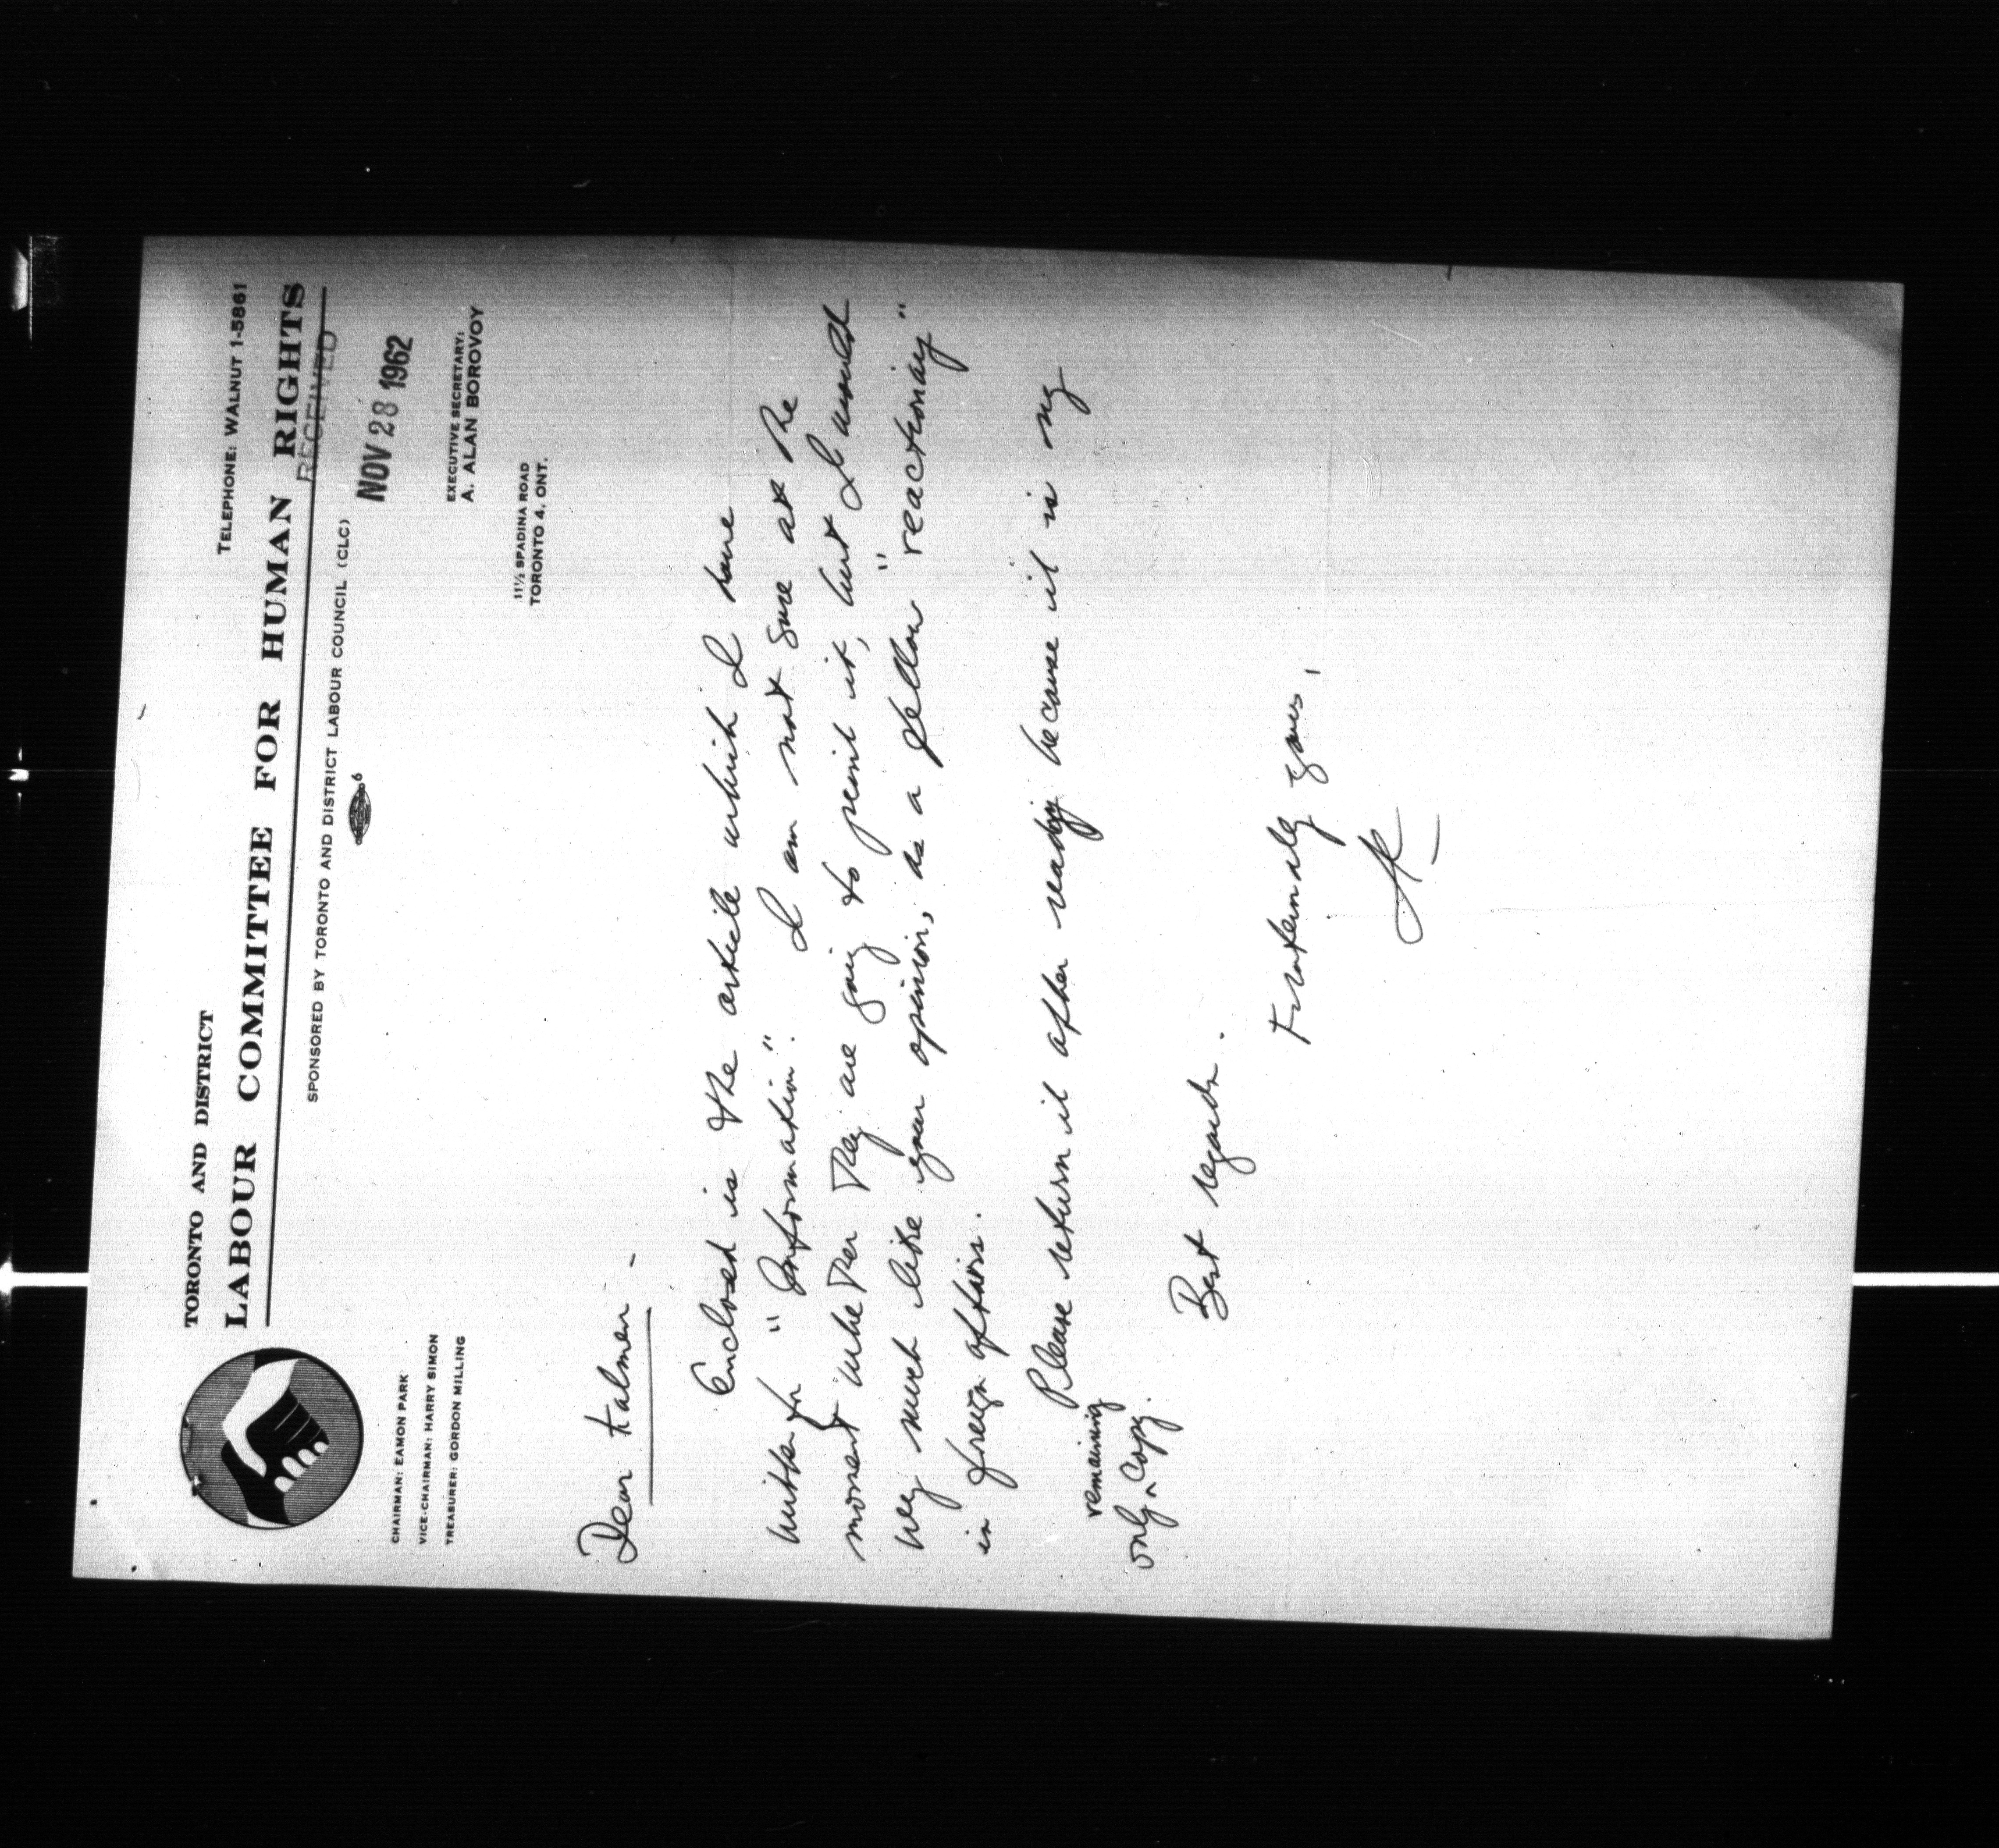 TORONTO AND DISTRICT
TELEPHONE: WALNUT 1-5861
LABOUR COMMITTEE FOR HUMAN RIGHTS
SPONSORED BY TORONTO AND DISTRICT LABOUR COUNCIL (CLC)
RECEIVED
NOV 28 1962
6
CHAIRMAN: EAMON PARK
VICE-CHAIRMAN: HARRY SIMON
TREASURER: GORDON MILLING
EXECUTIVE SECRETARY:
A. ALAN BOROVOY
11½ SPADINA ROAD
TORONTO 4, ONT.
Dear Kalmen -
Enclosed is the article which I have
written for "Information". I am not sure at the
moment whether they are going to print it, but I would
very much like your opinion, as a fellow "reactionary"
in foreign affairs.
Please return it after reading because it is my
only remaining copy.
Best regards.
Fraternally yours,